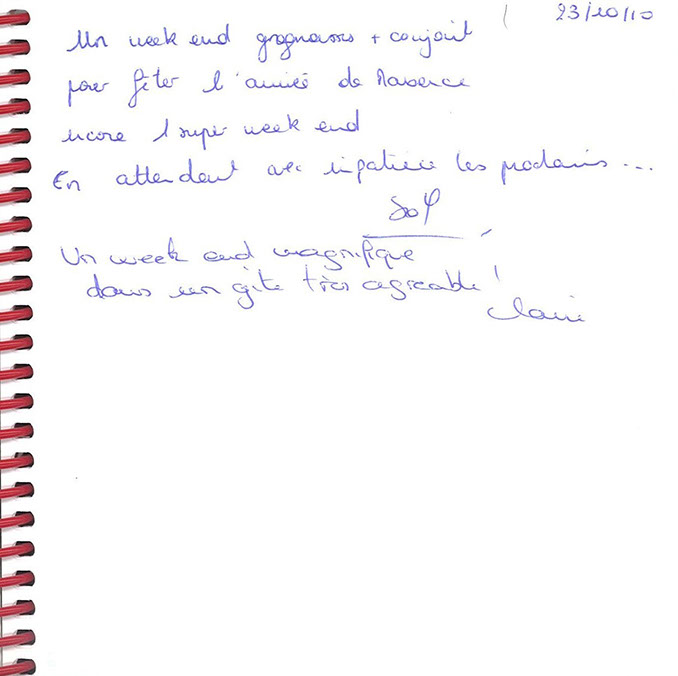 23/10/10
Un week end grognasses + conjoint
pour fêter l'arrivée de Maxence
encore 1 super week end
En attendant avec impatience les prochains ...
Sof
Un week end magnifique
dans un gîte très agréable !
Claire